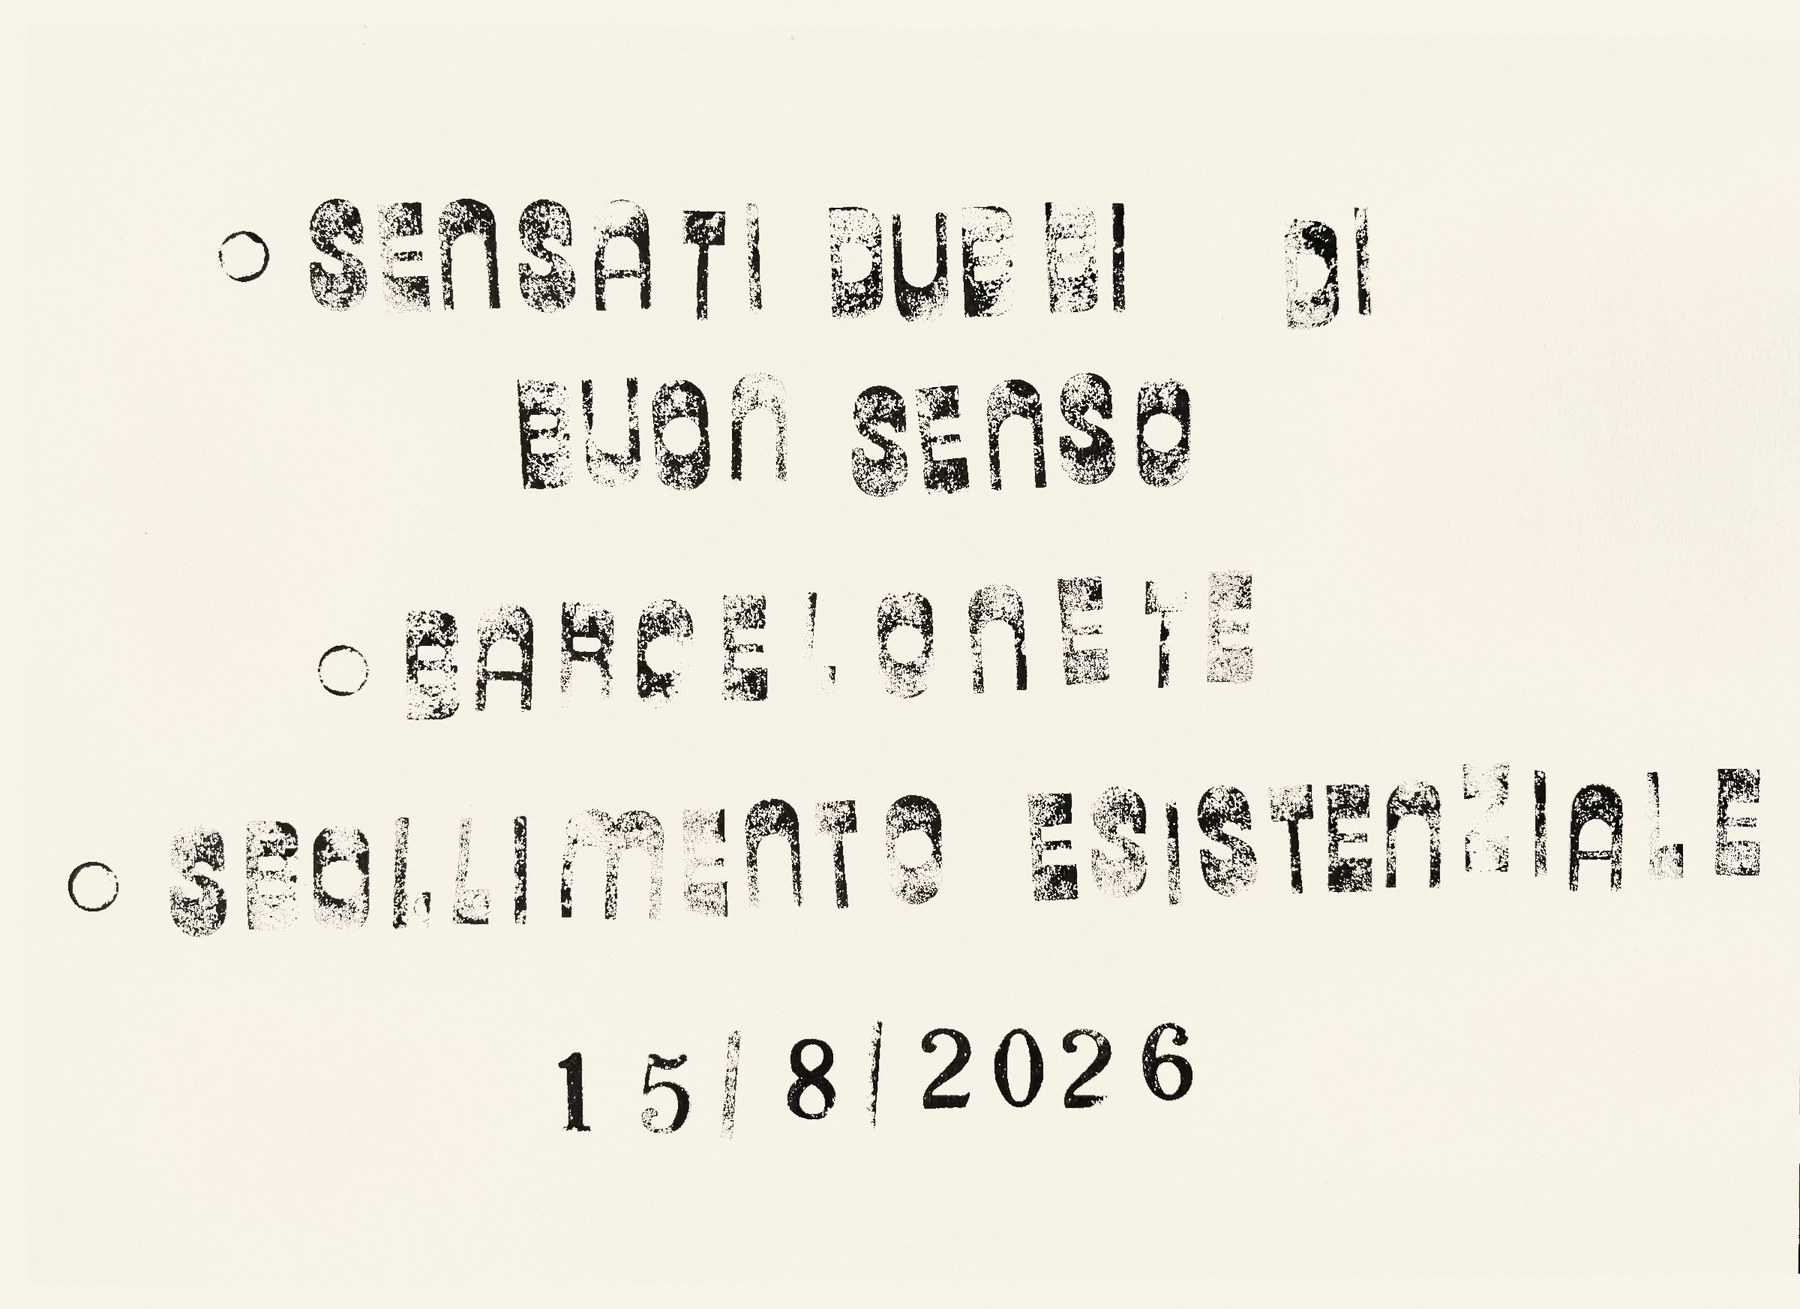 ○ SENSATI DUBBI DI
BUON SENSO
○ BARCELONETE
○ SBOLLIMENTO ESISTENZIALE
15/8/2026